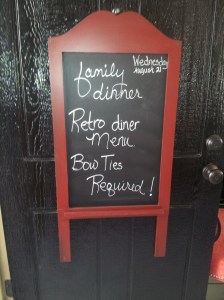 Wednesday
August 21-
family
dinner
Retro diner
Menu
Bow Ties
Required!